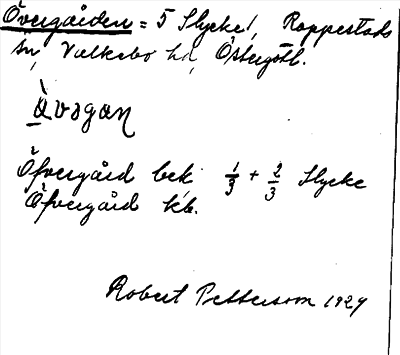 Övergården = 5 Slycke, Rappestads
sn, Valkebo hd, Östergötl.
Övogan
Öfvergård bek ⅓ + ⅔ Slycke
Öfvergård kb.
Robert Pettersson 1929